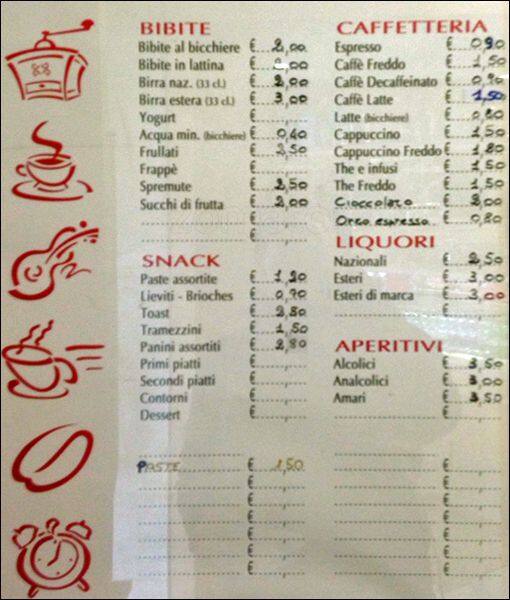 BIBITE
Bibite al bicchiere €....2,00
Bibite in lattina €....2,00
Birra naz. (33 cl.) €....2,00
Birra estera (33 cl.) €....3,00
Yogurt €
Acqua min. (bicchiere) €....0,40
Frullati €....2,50
Frappè €
Spremute €....2,50
Succhi di frutta €....2,00
€
€
SNACK
Paste assortite €
Lieviti - Brioches €....0,90
Toast €....2,80
Tramezzini €....1,50
Panini assortiti €....2,80
Primi piatti €
Secondi piatti €
Contorni €
Dessert €
PASTE € 1,50
€
€
€
€
€
€
CAFFETTERIA
Espresso €....0,90
Caffè Freddo €....1,50
Caffè Decaffeinato €....0,90
Caffè Latte €....1,50
Latte (bicchiere) €....0,80
Cappuccino €....1,50
Cappuccino Freddo €....1,80
The e infusi €....1,50
The Freddo €....1,50
Cioccolato €....2,00
Orzo espresso €....0,80
LIQUORI
Nazionali €....2,50
Esteri €....3,00
Esteri di marca €....3,00
€
APERITIVI
Alcolici €....3,50
Analcolici €....3,00
Amari €....3,50
€
€
€
€
€
€
€
€